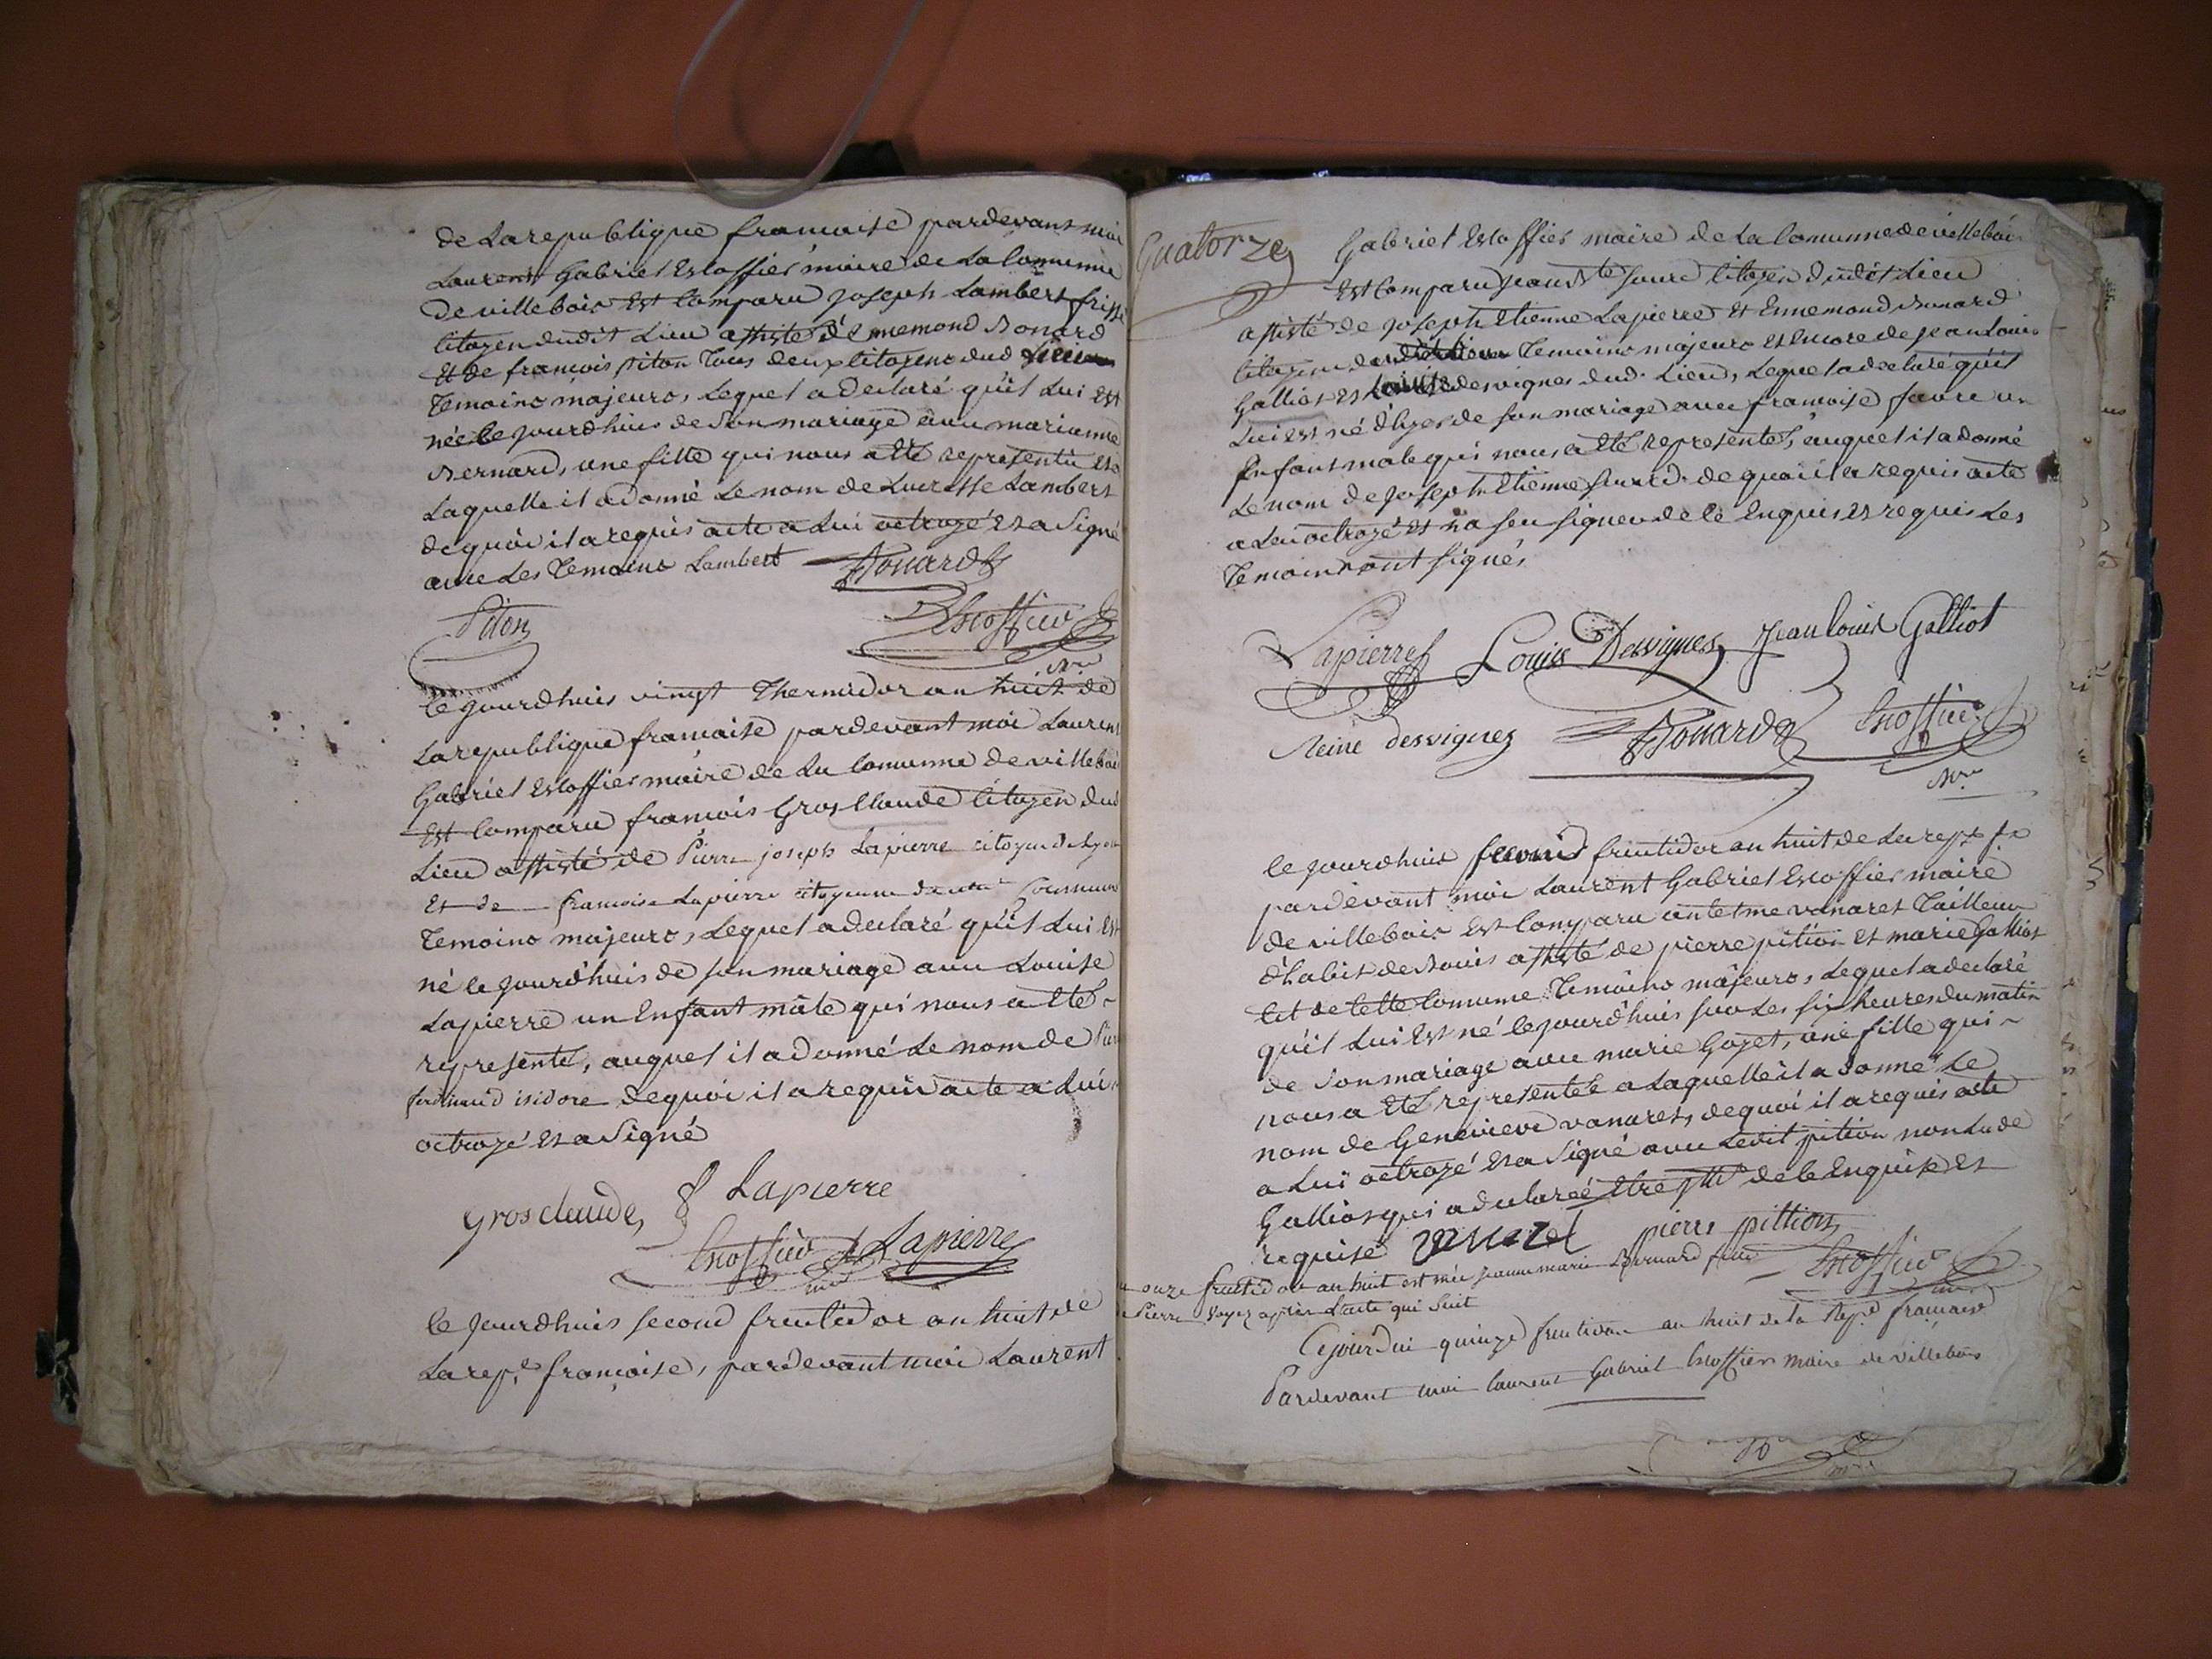 de La republique francaise pardevant moi
Laurent Gabriel Escoffier maire de La Comunne
de villebois Est Comparu joseph Lambert frisse
Citoyen dudit Lieu assisté d'Ennemond Bonard
Et de francois piton Tous deux Citoyens dud Lieu
Temoins majeurs, Lequel a declaré qu'il Lui Est
née le jourdhuis de Son mariage avec marianne
Bernard, une fille qui nous a Eté representée Et a
Laquelle il a donné Le nom de Lucresse Lambert
de quoi il a requis acte a Lui octroyé Et a Signé
avec Les Temoins Lambert Bonard
Piton Escoffier
Mre
le jourdhuis vingt Thermidor an huit de
La republique francaise pardevant moi Laurent
Gabriel Escoffier maire de La Comunne de villebois
Est Comparu francois Gros Claude Citoyen dud
Lieu assisté de Pierre joseph Lapierre citoyen de Lyon
Et de francoise Lapierre citoyenne de cette Commune
Temoins majeurs, Lequel a declaré qu'il Lui Est
né le jourd'huis de son mariage avec Louise
Lapierre un Enfant mâle qui nous a Eté
representé, auquel il a donné Le nom de Pierre
ferdinand isidore de quoi il a requis acte a Lui
octroyé Et a Signé
Grosclaude, f Lapierre
Escoffier Lapierre
mre
le jourdhuis second fructidor an huit de
La rep.e française, pardevant moi Laurent
Quatorze
Gabriel Escoffier maire de La Comunne de villebois
Est Comparu jean Bte favre Citoyen dudit Lieu
assisté de joseph Etienne Lapierre Et Ennemond Bonard
Citoyens dudit Lieu Temoins majeurs et Encore de jean Louis
Galliot Et Louise desvignes dud. Lieu, Lequel a declaré qu'il
Lui est né d'hyer de son mariage avec francoise favre un
Enfant male qui nous a Eté representé, auquel il a donné
Le nom de joseph Etienne favre. de quoi il a requis acte
a Lui octroyé Et n'a seu signer de ce Enquis et requis Les
Temoins ont signés
Lapierre Louis Desvignes Jean louis Galliot
Reine desvignes Bonard Escoffier
Mre
le jourdhuis second fructidor an huit de La rep. f.e
pardevant moi Laurent Gabriel Escoffier maire
de villebois Est Comparu antelme vanaret Tailleur
d'habit de Bouis assisté de pierre pition Et marie Galliot
Cit de Cette Comunne Temoins majeurs, Lequel a declaré
qu'il Lui Est né le jourd'huis sur Les six heures du matin
de Son mariage avec marie Gozet, une fille qui
nous a Eté representée a Laquelle il a donné Le
nom de Genevieve vanaret, de quoi il a requis acte
a Lui octroyé Et a Signé avec Ledit pition non La de
Galliot qui a declareé de ce Enquise Et
requise vanaret pierre pittion
onze fructidor an huit est née jeanne marie Bernard fille Escoffier
Pierre voyez après L'acte qui suit mre
Cejourdui quinze fructidor an huit de la Rep.e française
Pardevant moi laurent Gabriel Escoffier maire de villebois